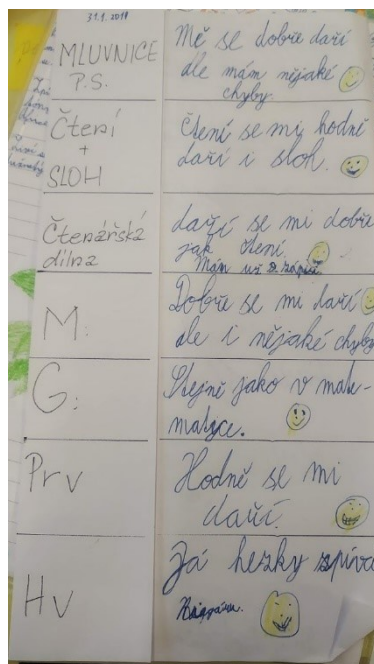 31.1.2017
MLUVNICE
P.S.
Mě se dobře daří
dle mám nějaké
chyby.
Čtení
+
SLOH
čtení se mi hodně
daří i sloh.
Čtenářská
dílna
daří se mi dobře
jak čtení.
Mám už 2
M:
Dobře se mi daří
ale i nějaké chyby
G:
Stejně jako v mate-
matyce.
Prv
Hodně se mi
daří.
Hv
Já hezky spíva